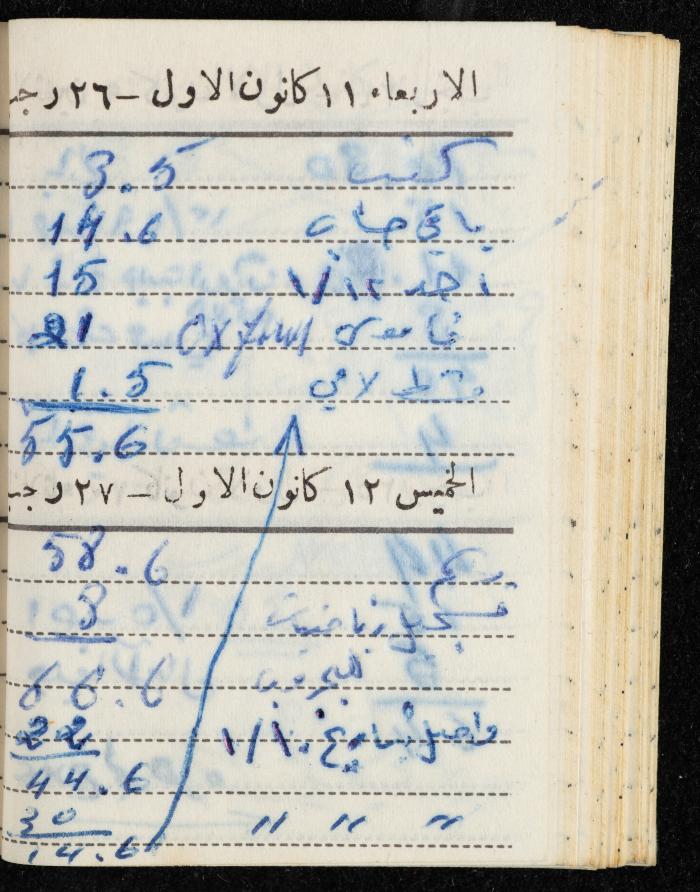 الاربعاء ١١ كانون الاول - ٢٦ رجب
كتب 3.5
باقي حساب 14.6
احد ١/١٢ 15
قاموس Oxford 21
1.5
55.6
الخميس ١٢ كانون الاول - ٢٧ رجب
58.6
تسجيل رياضيات 3
66.6
واصل بتاريخ ١/١٠ 22
44.6
" " " 30
14.6